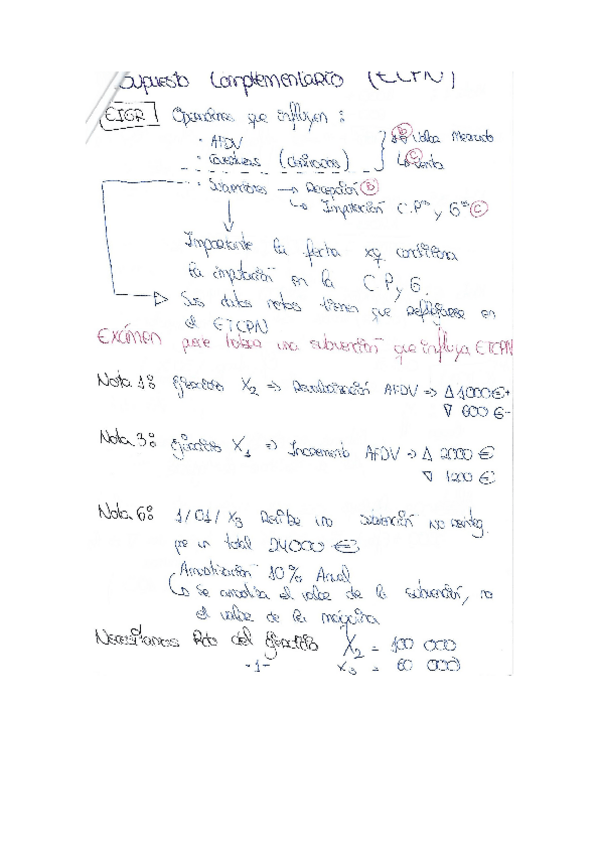 Supuesto Complementario (ECPN)
EIGR Operaciones que influyen :
· AFDV
· (Coberturas)
Valor Mercado
Venta
· Subvenciones → Recepción (B)
↳ Imputación C.Pª y Gª (C)
Importante la fecha xq condiciona
la imputación en la C P y G.
Sus datos netos tienen que reflejarse en
el ETCPN
EXámen pone habrá una subvención que influya ETCPN
Nota 1: Ejercicio X2 ⇒ Revalorización AFDV ⇒ Δ 1000€+
∇ 600 €-
Nota 3: Ejercicio X1 ⇒ Incremento AFDV ⇒ Δ 2000 €
∇ 1200 €
Nota 6: 1/01/X3 Recibe una subvención no reinteg.
por un total 24000 €
Amortización 10% Anual
↳ Se amortiza el valor de la subvención, no
el valor de la máquina
Necesitamos Rdo del Ejercicio X2 = 100 000
-1- X3 = 60 000